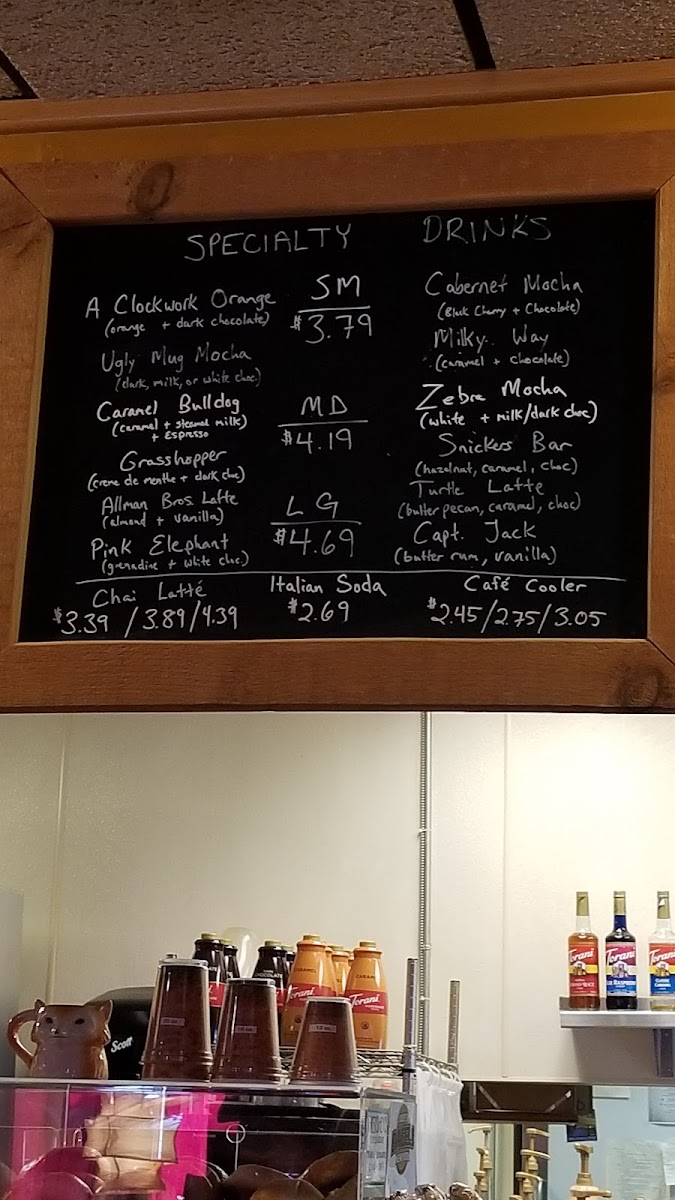 SPECIALTY DRINKS
A Clockwork Orange
(orange + dark chocolate)
Ugly Mug Mocha
(dark, milk, or white choc.)
Caramel Bulldog
(caramel + steamed milk)
+ Espresso
Grasshopper
(creme de menthe + dark choc)
Allman Bros. Latte
(almond + vanilla)
Pink Elephant
(grenadine + white choc.)
SM
$3.79
MD
$4.19
LG
$4.69
Cabernet Mocha
(Black Cherry + Chocolate)
Milky Way
(caramel + chocolate)
Zebra Mocha
(white + milk/dark choc)
Snickers Bar
(hazelnut, caramel, choc)
Turtle Latte
(butter pecan, caramel, choc)
Capt. Jack
(butter rum, vanilla)
Chai Latté
$3.39 /3.89/4.39
Italian Soda
$2.69
Café Cooler
$2.45/2.75/3.05
CARAMEL
Torani
CHOCOLATE
CARAMEL
Torani
Torani
Torani
BLUE RASPBERRY
Torani
Scott